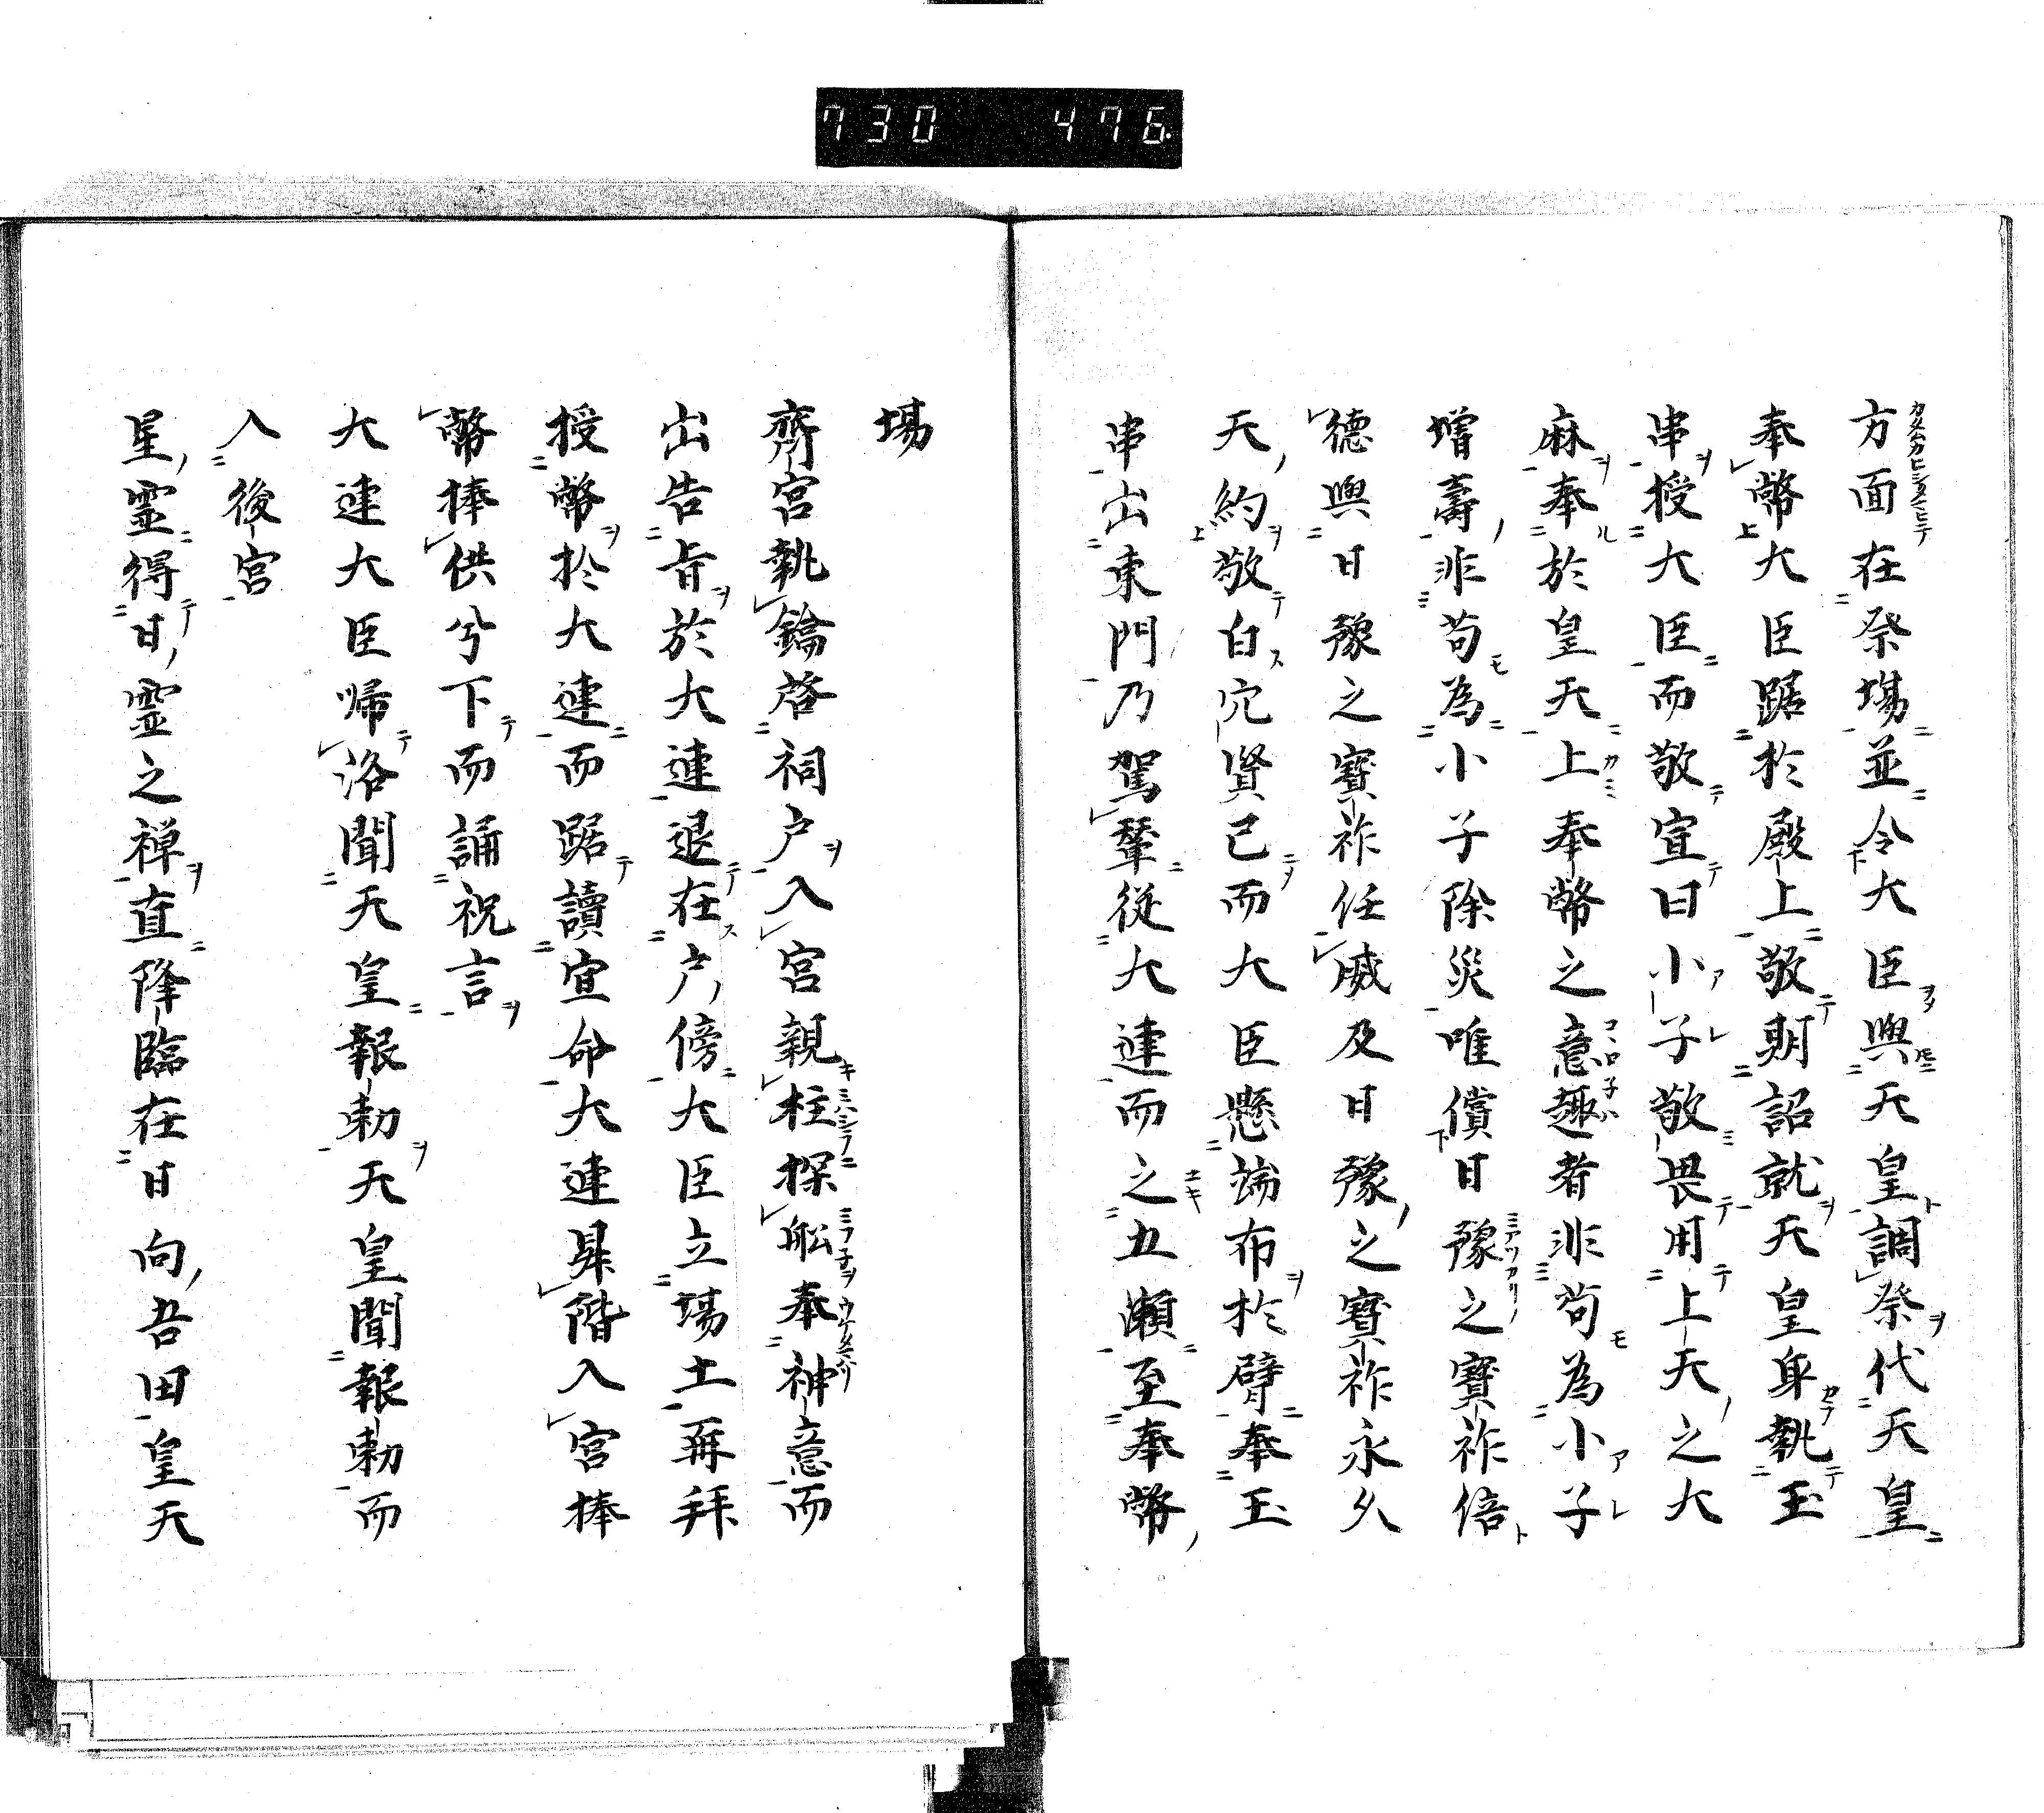 730 476
方面在祭場並令大臣與天皇調祭代天皇
奉幣大臣踞於殿上敬則詔就天皇身執玉
串授大臣而敬宣曰小子敬畏用上天之大
麻奉於皇天上奉幣之意趣者非苟為小子
增壽非苟為小子除災唯償日豫之寶祚倍
德與日豫之寶祚任威及日豫之寶祚永久
天約敬白穴賢已而大臣懸端布於臂奉玉
串出東門乃駕輦從大連而之五瀨至奉幣
場
齋宮執鑰啓祠戶入宮親柱探舩奉神意而
出告旨於大連退在戶傍大臣立場土再拜
授幣於大連而踞讀宣命大連昇階入宮捧
幣捧供兮下而誦祝言
大連大臣帰洛聞天皇報勅天皇聞報勅而
入後宮
星靈得日靈之禅直降臨在日向吾田皇天